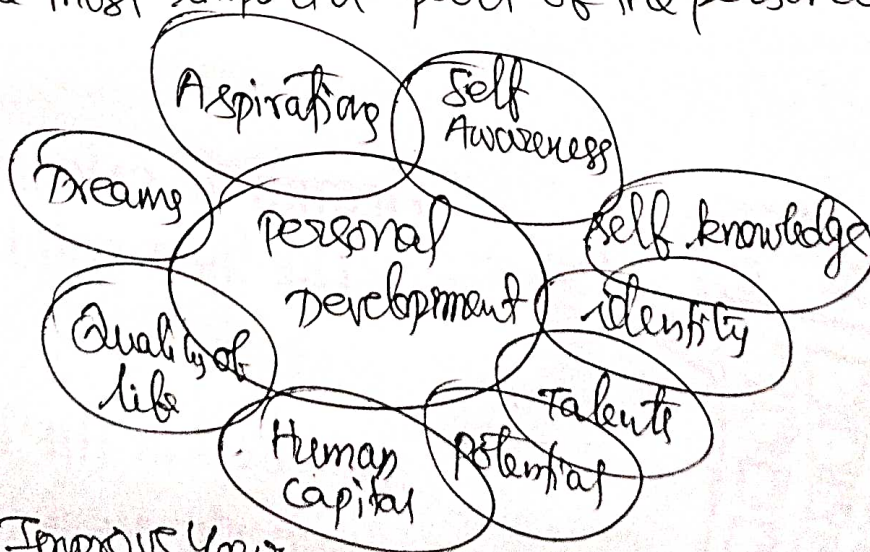 most important part of the personal
Aspirations
Self
Awareness
Dreams
self knowledge
Personal
Development
identity
Quality of
life
Talents
Human
capital
potential
Improve Your